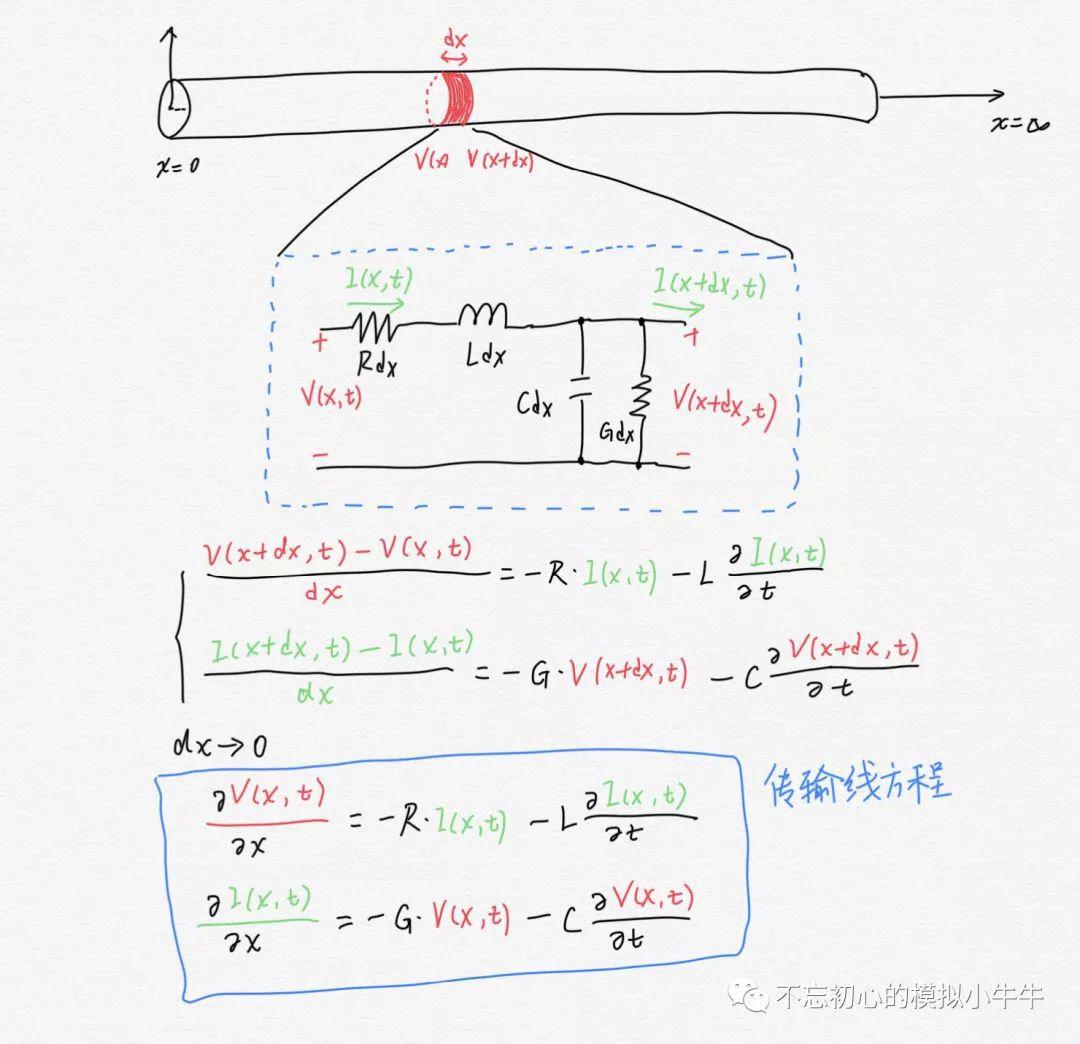 dx
x=0
V(x) V(x+dx)
x=∞
I(x,t)
I(x+dx,t)
+
+
Rdx
Ldx
V(x,t)
Cdx
Gdx
V(x+dx,t)
-
-
V(x+dx,t)-V(x,t)
dx
=-R·I(x,t)-L ∂I(x,t)/∂t
I(x+dx,t)-I(x,t)
dx
=-G·V(x+dx,t)-C ∂V(x+dx,t)/∂t
dx→0
传输线方程
∂V(x,t)/∂x=-R·I(x,t)-L ∂I(x,t)/∂t
∂I(x,t)/∂x=-G·V(x,t)-C ∂V(x,t)/∂t
不忘初心的模拟小牛牛